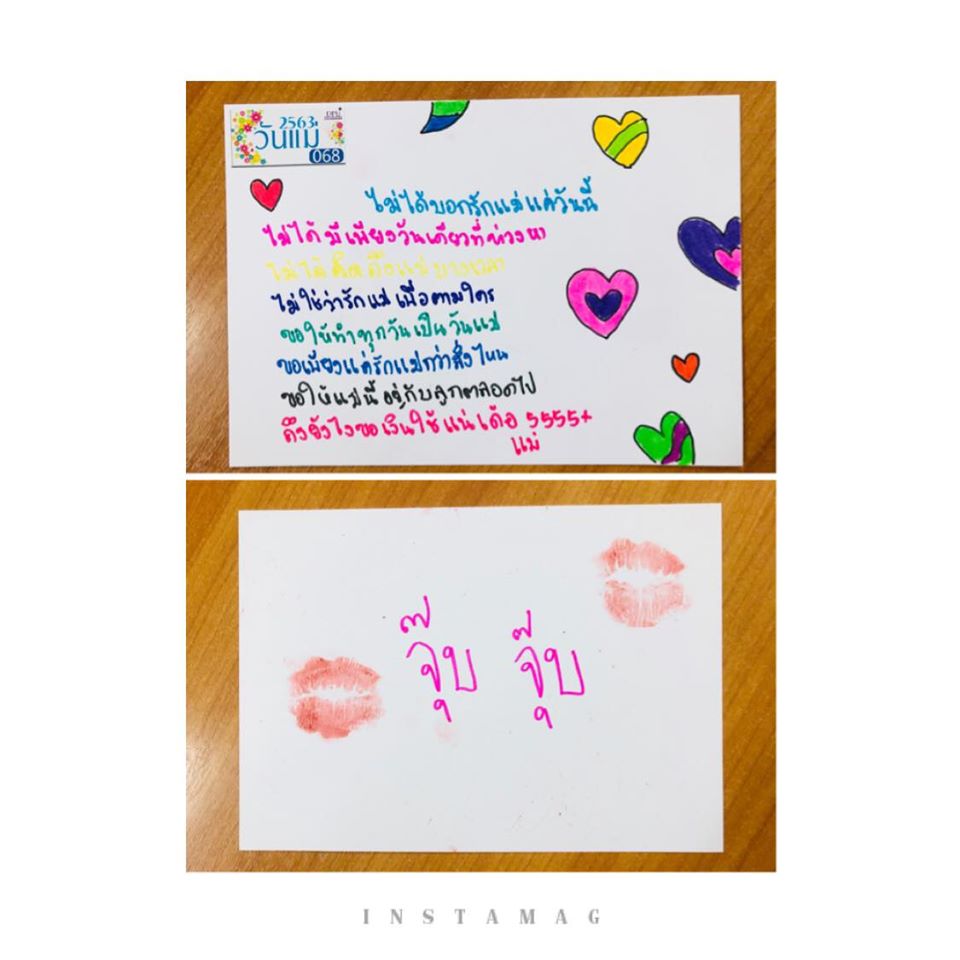 2563
วันแม่
068
ไม่ได้บอกรักแม่แค่วันนี้
ไม่ได้มีเพียงวันเดียวที่ห่วงหา
ไม่ได้คิดถึงแม่บางเวลา
ไม่ใช่ว่ารักแม่เพื่อตามใคร
ขอให้ทำทุกวันเป็นวันแม่
ขอเพียงแค่รักแม่กว่าสิ่งไหน
ขอให้แม่นี้อยู่กับลูกตลอดไป
ถึงยังไงขอเงินใช้แน่เด้อ 5555+
แม่
จุ๊บ จุ๊บ
INSTAMAG